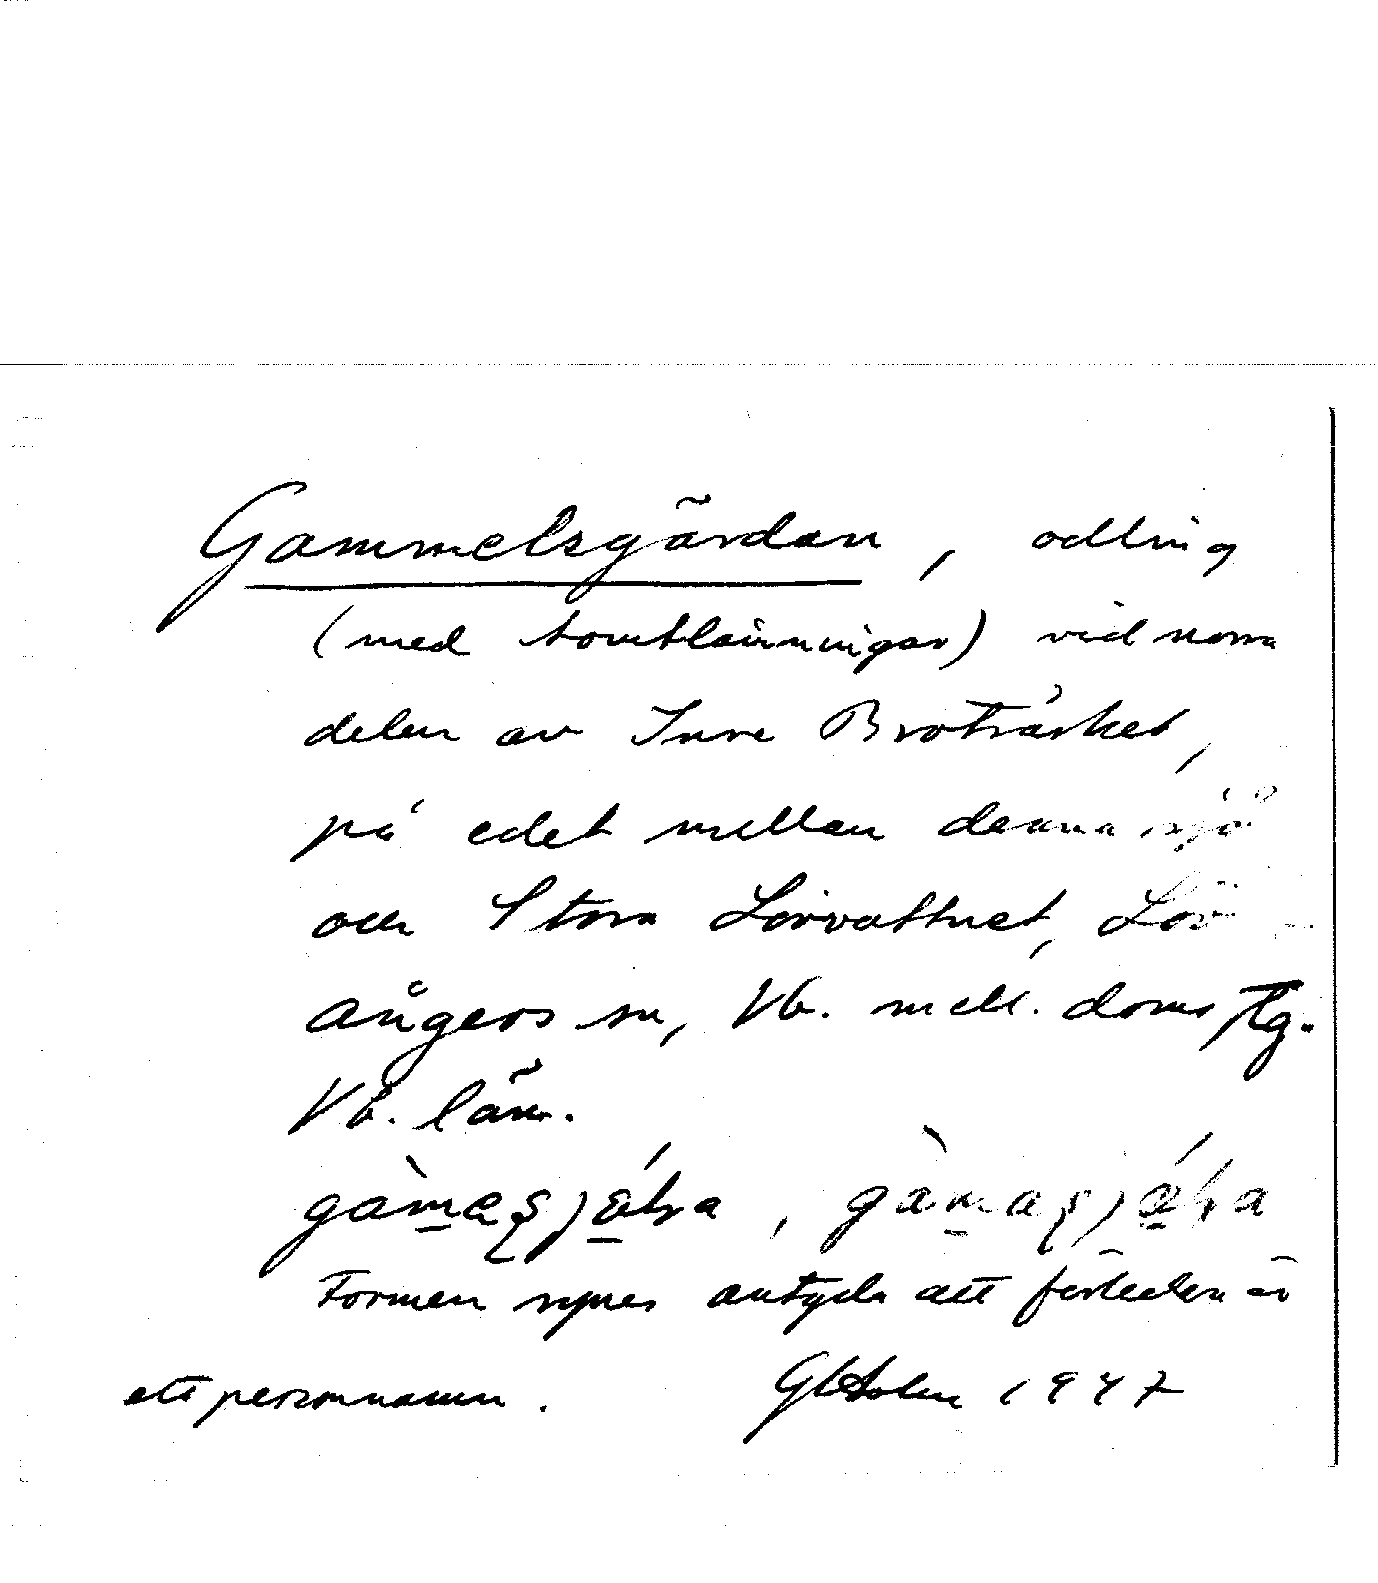 Gammelsgärdan, odling
(med tomtlämningar) vid norra
delen av Inre Broträsket,
på edet mellan denna sjö
och Stora Lövvattnet, Löv-
ångers sn, Vb. mell. doms
Vb. län.
Formen synes antyda att förleden är
ett personnamn. 1947